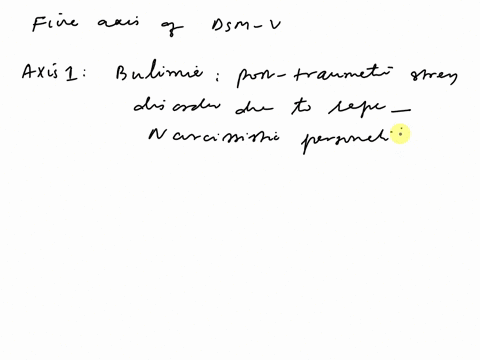 Five axis of DSM-V
Axis 1: Bulimie: post-traumetic stress
disorder due to rape —
Narcissistic personeli